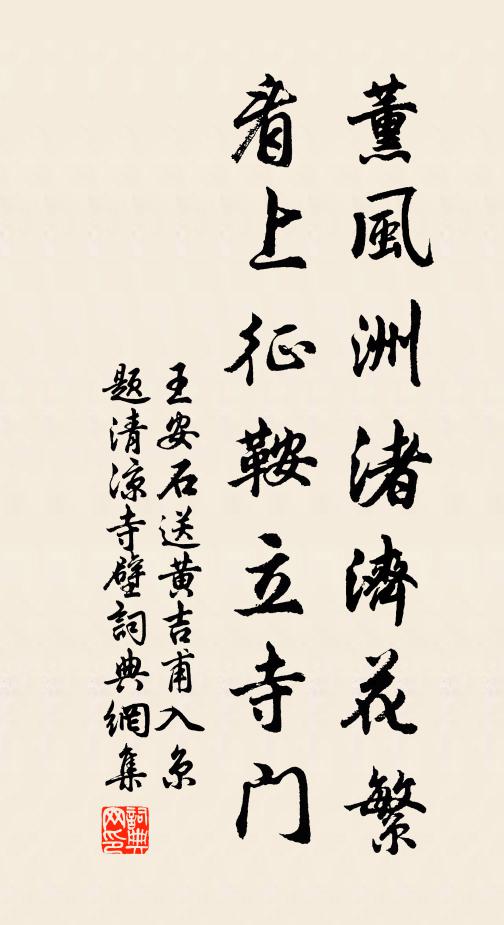 薰風洲渚濟花繁
看上征鞍立寺門
王安石送黄吉甫入京
題清涼寺壁詞典網集
詞典網印